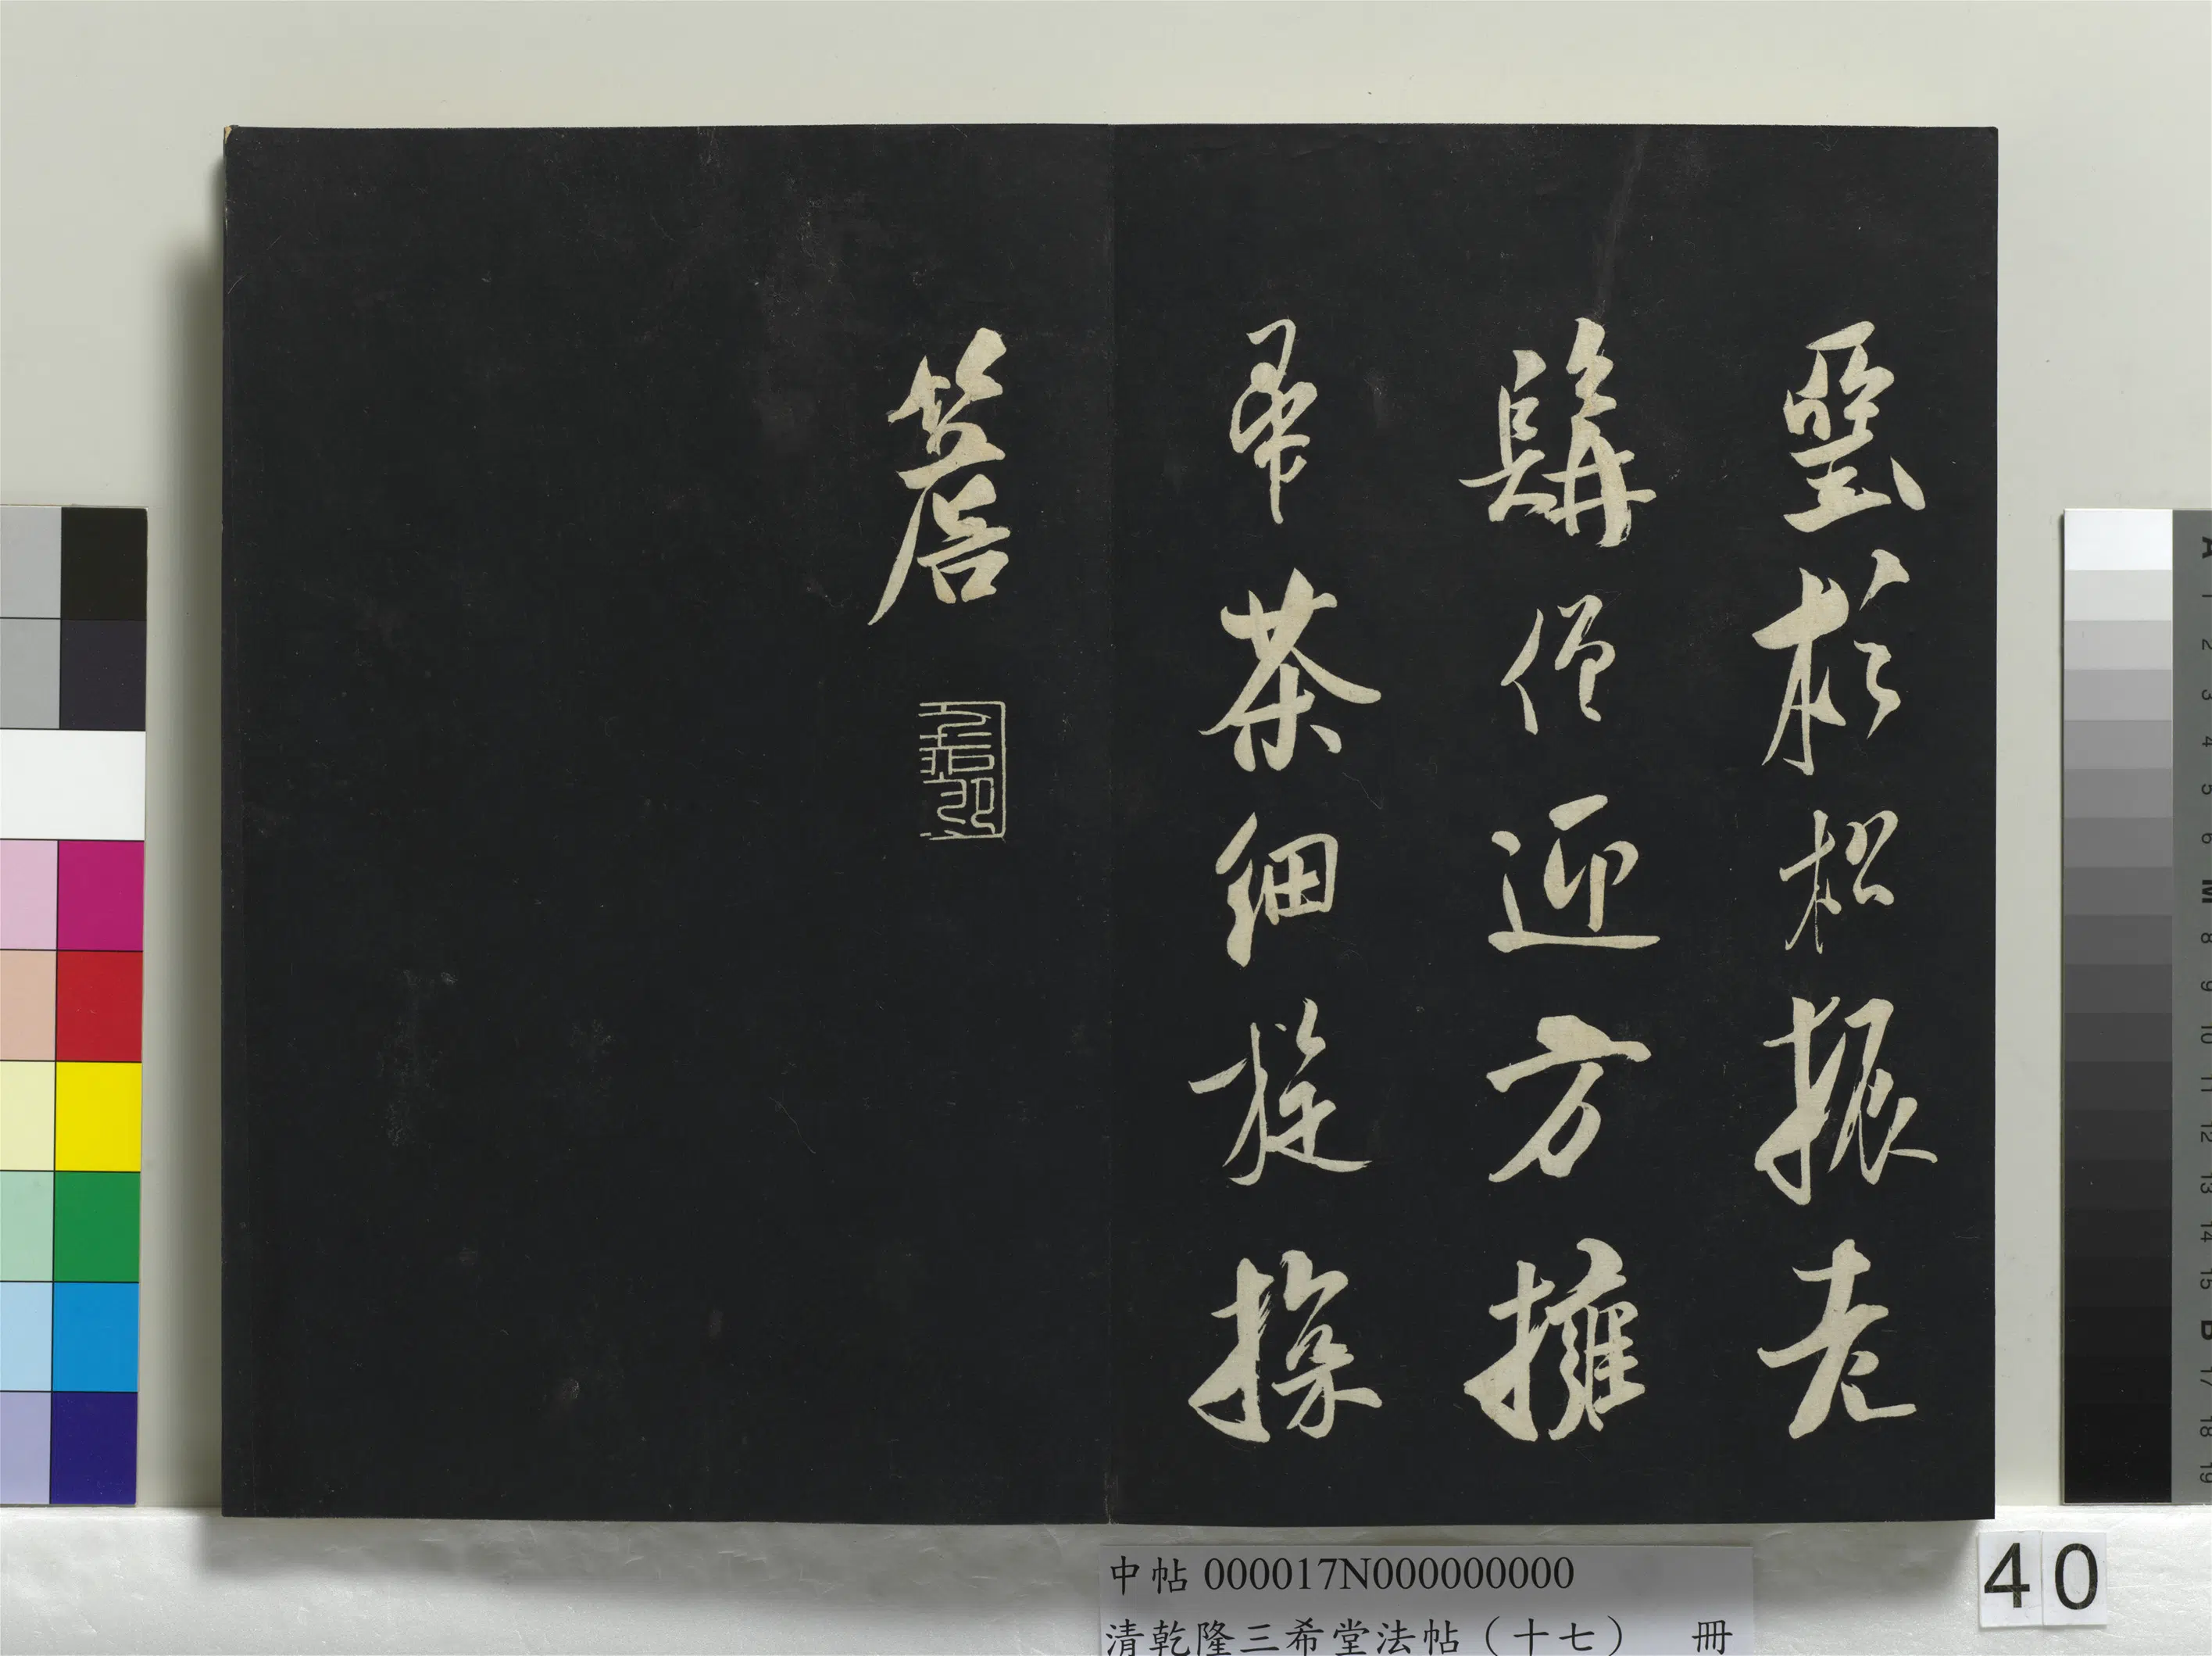 杉松振老
髯僧迎方擁
帚茶細旋探
簷
40
中帖 000017N000000000
清乾隆三希堂法帖（十七） 冊
A 1 2 3 4 5 6 M 8 9 10 11 12 13 14 15 B 17 18 19